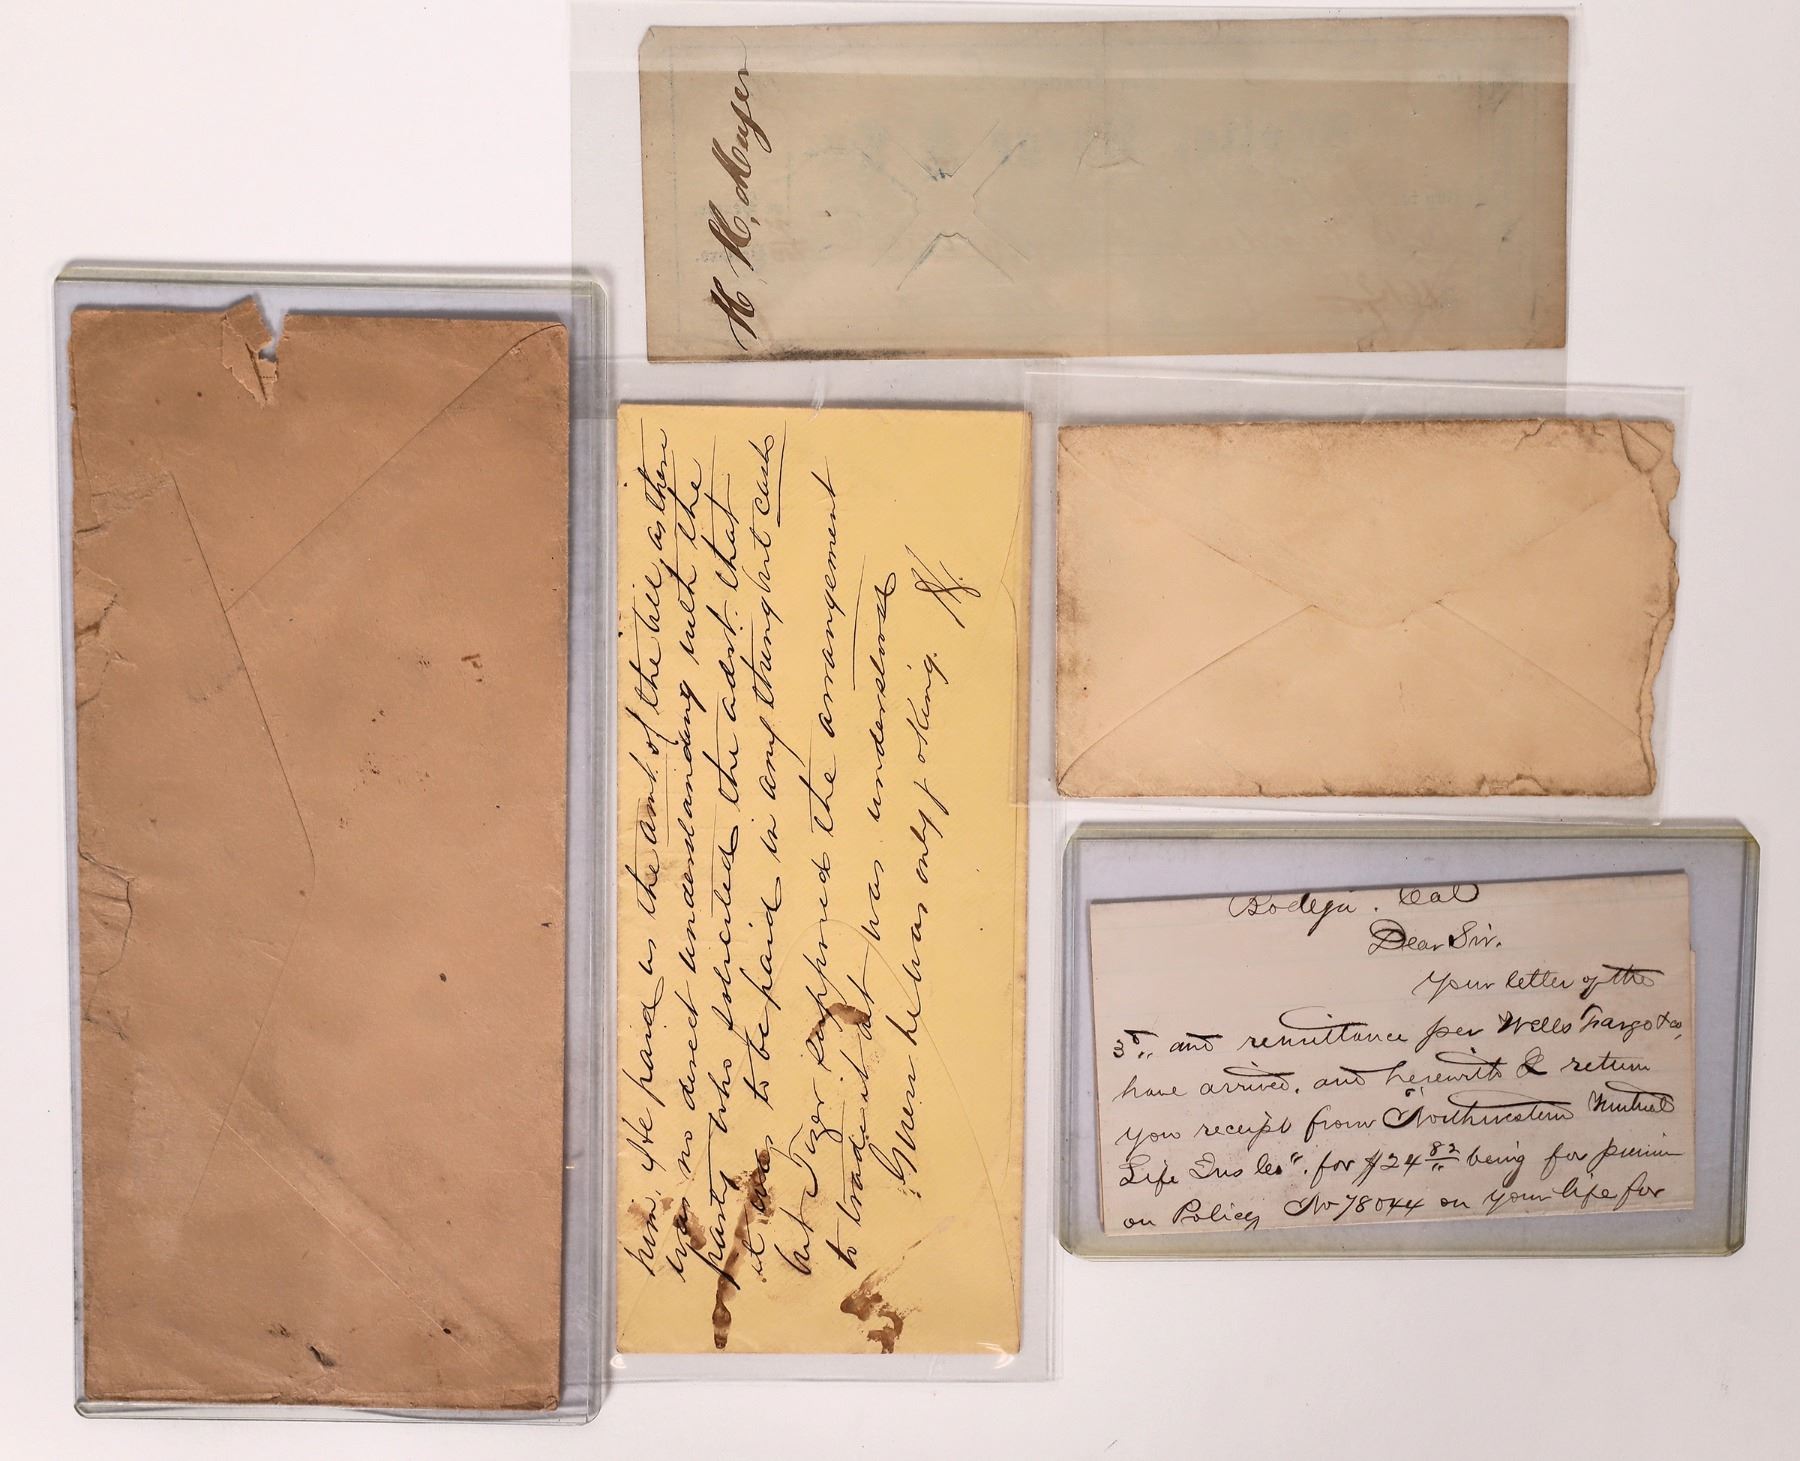 H. H. Meyer
him. He paid as the amt. of the bill, as there
was no direct understanding with the
party who solicited the advt. that
it was to be paid in any thing but cash
but Tozer supposed the arrangement
to trade it out was understood
Guess he was only joking. N.
Bodega. Cal
Dear Sir.
Your letter of the
3d,, and remittance per Wells Fargo & Co,
have arrived. and herewith I return
you receipt from "Northwestern Mutual
Life Ins Co". for $24 82 being for premium
on Policy No 78044 on your life for